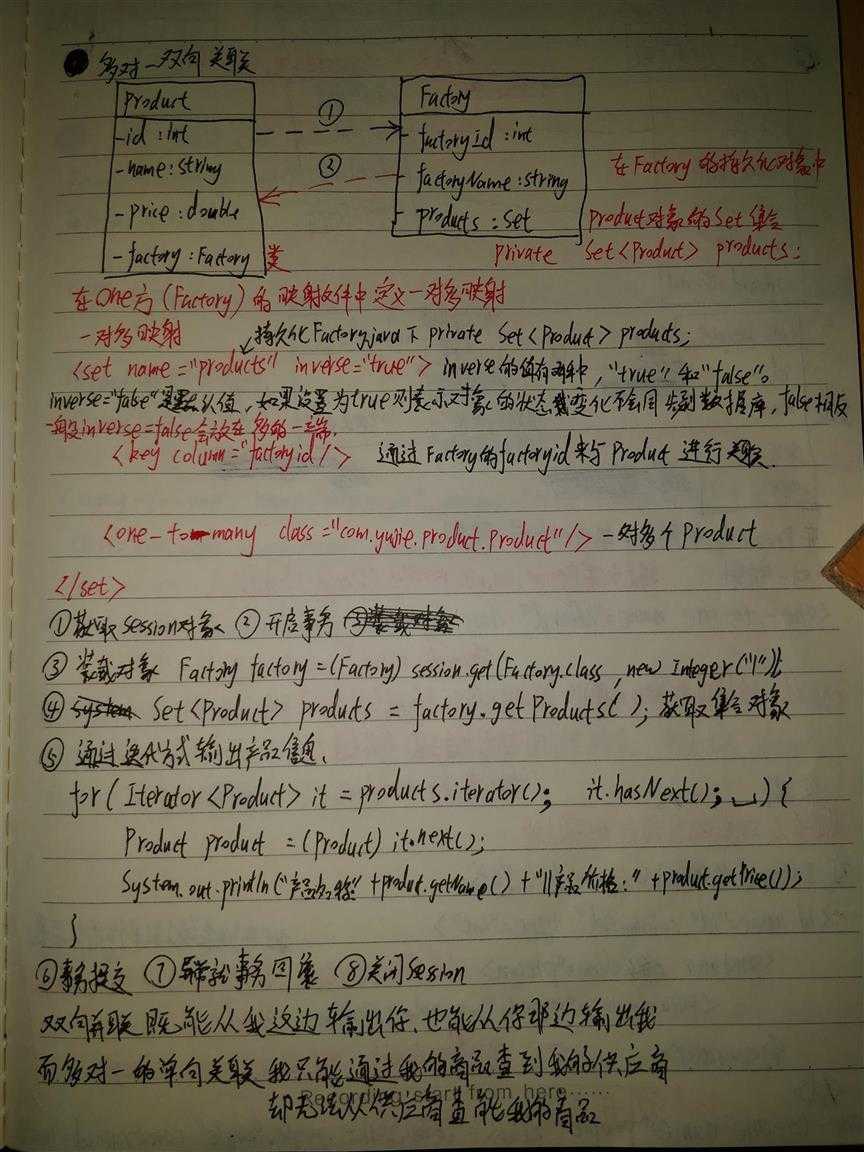 多对一双向关联
Product
-id:int
-name:string
-price:double
-factory:Factory类
①
②
Factory
-factoryId:int
factoryName:string
products:Set
在Factory的持久化对象中
Product对象的Set集合
private Set<Product> products;
在One方(Factory)的映射文件中定义一对多映射
一对多映射
持久化Factory.java下 private Set<Product> products;
<set name="products" inverse="true"> inverse的值有两种,"true"和"false"。
inverse="false"是默认值,如果设置为true则表示对象的状态变化不会同步到数据库,false相反
一般inverse=false会放在多的一端.
<key column="factoryid"/> 通过Factory的factoryid来与Product进行关联.
<one-to-many class="com.yujie.product.Product"/> 一对多个Product
</set>
①获取session对象 ②开启事务
③装载对象 Factory factory=(Factory) session.get(Factory.class, new Integer("1"));
④ Set<Product> products = factory.getProducts(); 获取集合对象
⑤通过迭代方式输出产品信息.
for(Iterator<Product> it = products.iterator(); it.hasNext(); ){
Product product = (Product) it.next();
System.out.println("产品名称" +product.getName() + "||产品价格:" +product.getPrice());
}
⑥事务提交 ⑦异常就事务回滚 ⑧关闭session
双向关联既能从我这边输出你,也能从你那边输出我
而多对一的单向关联我只能通过我的商品查到我的供应商
却无法从供应商查到我的商品
Recording start from here......